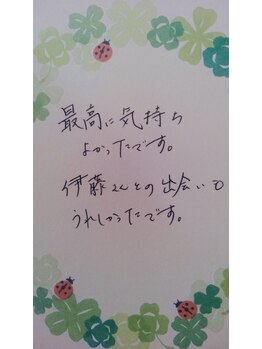 最高に気持ち
よかったです。
伊藤さんとの出会いも
うれしかったです。